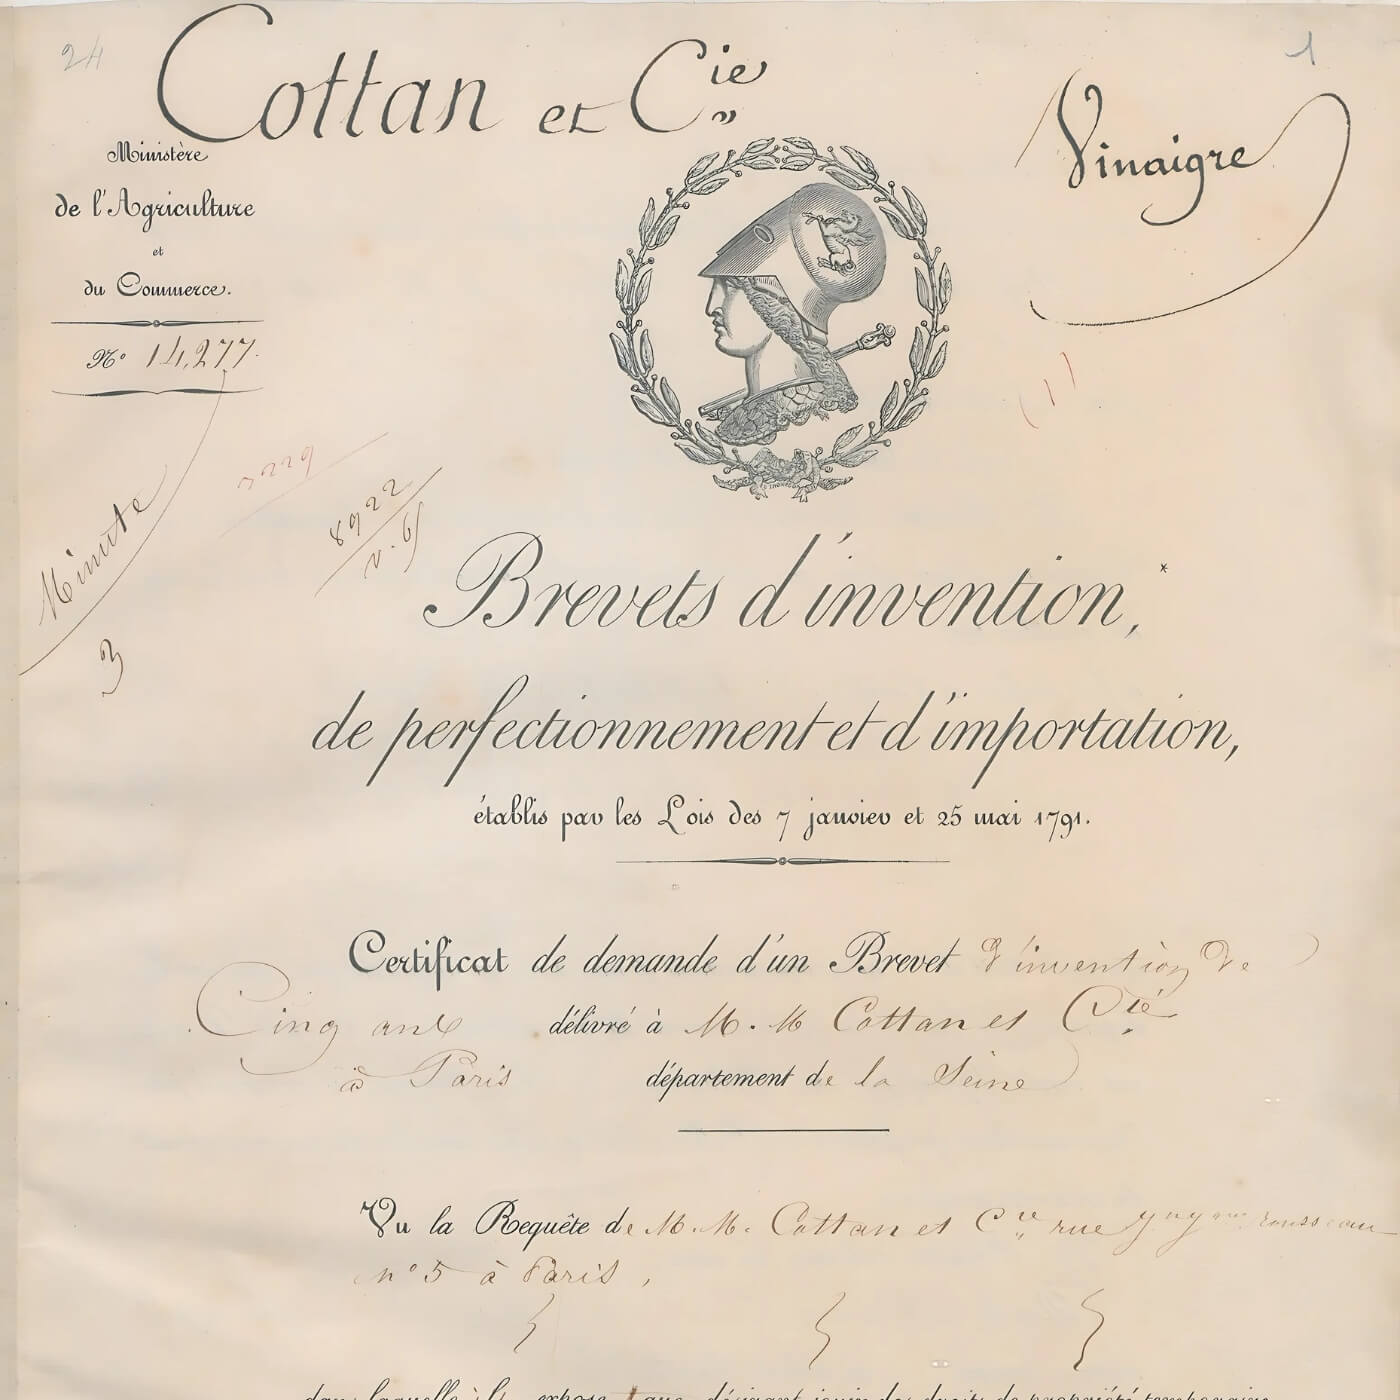 24
1
Cottan et Cie
Vinaigre
Ministère
de l'Agriculture
et
du Commerce.
No 14,277.
Minute
3
3229
8922
(1)
Brevets d'invention,*
de perfectionnement et d'importation,
établis par les Lois des 7 janvier et 25 mai 1791.
Certificat de demande d'un Brevet d'invention de
Cinq ans délivré à M. M Cottan et Cie
à Paris département de la Seine
Vu la Requête de M. M. Cottan et Cie rue rousseau
no 5 à Paris,
dans laquelle ils expose que, désirant jouir des droits de propriété temporaire